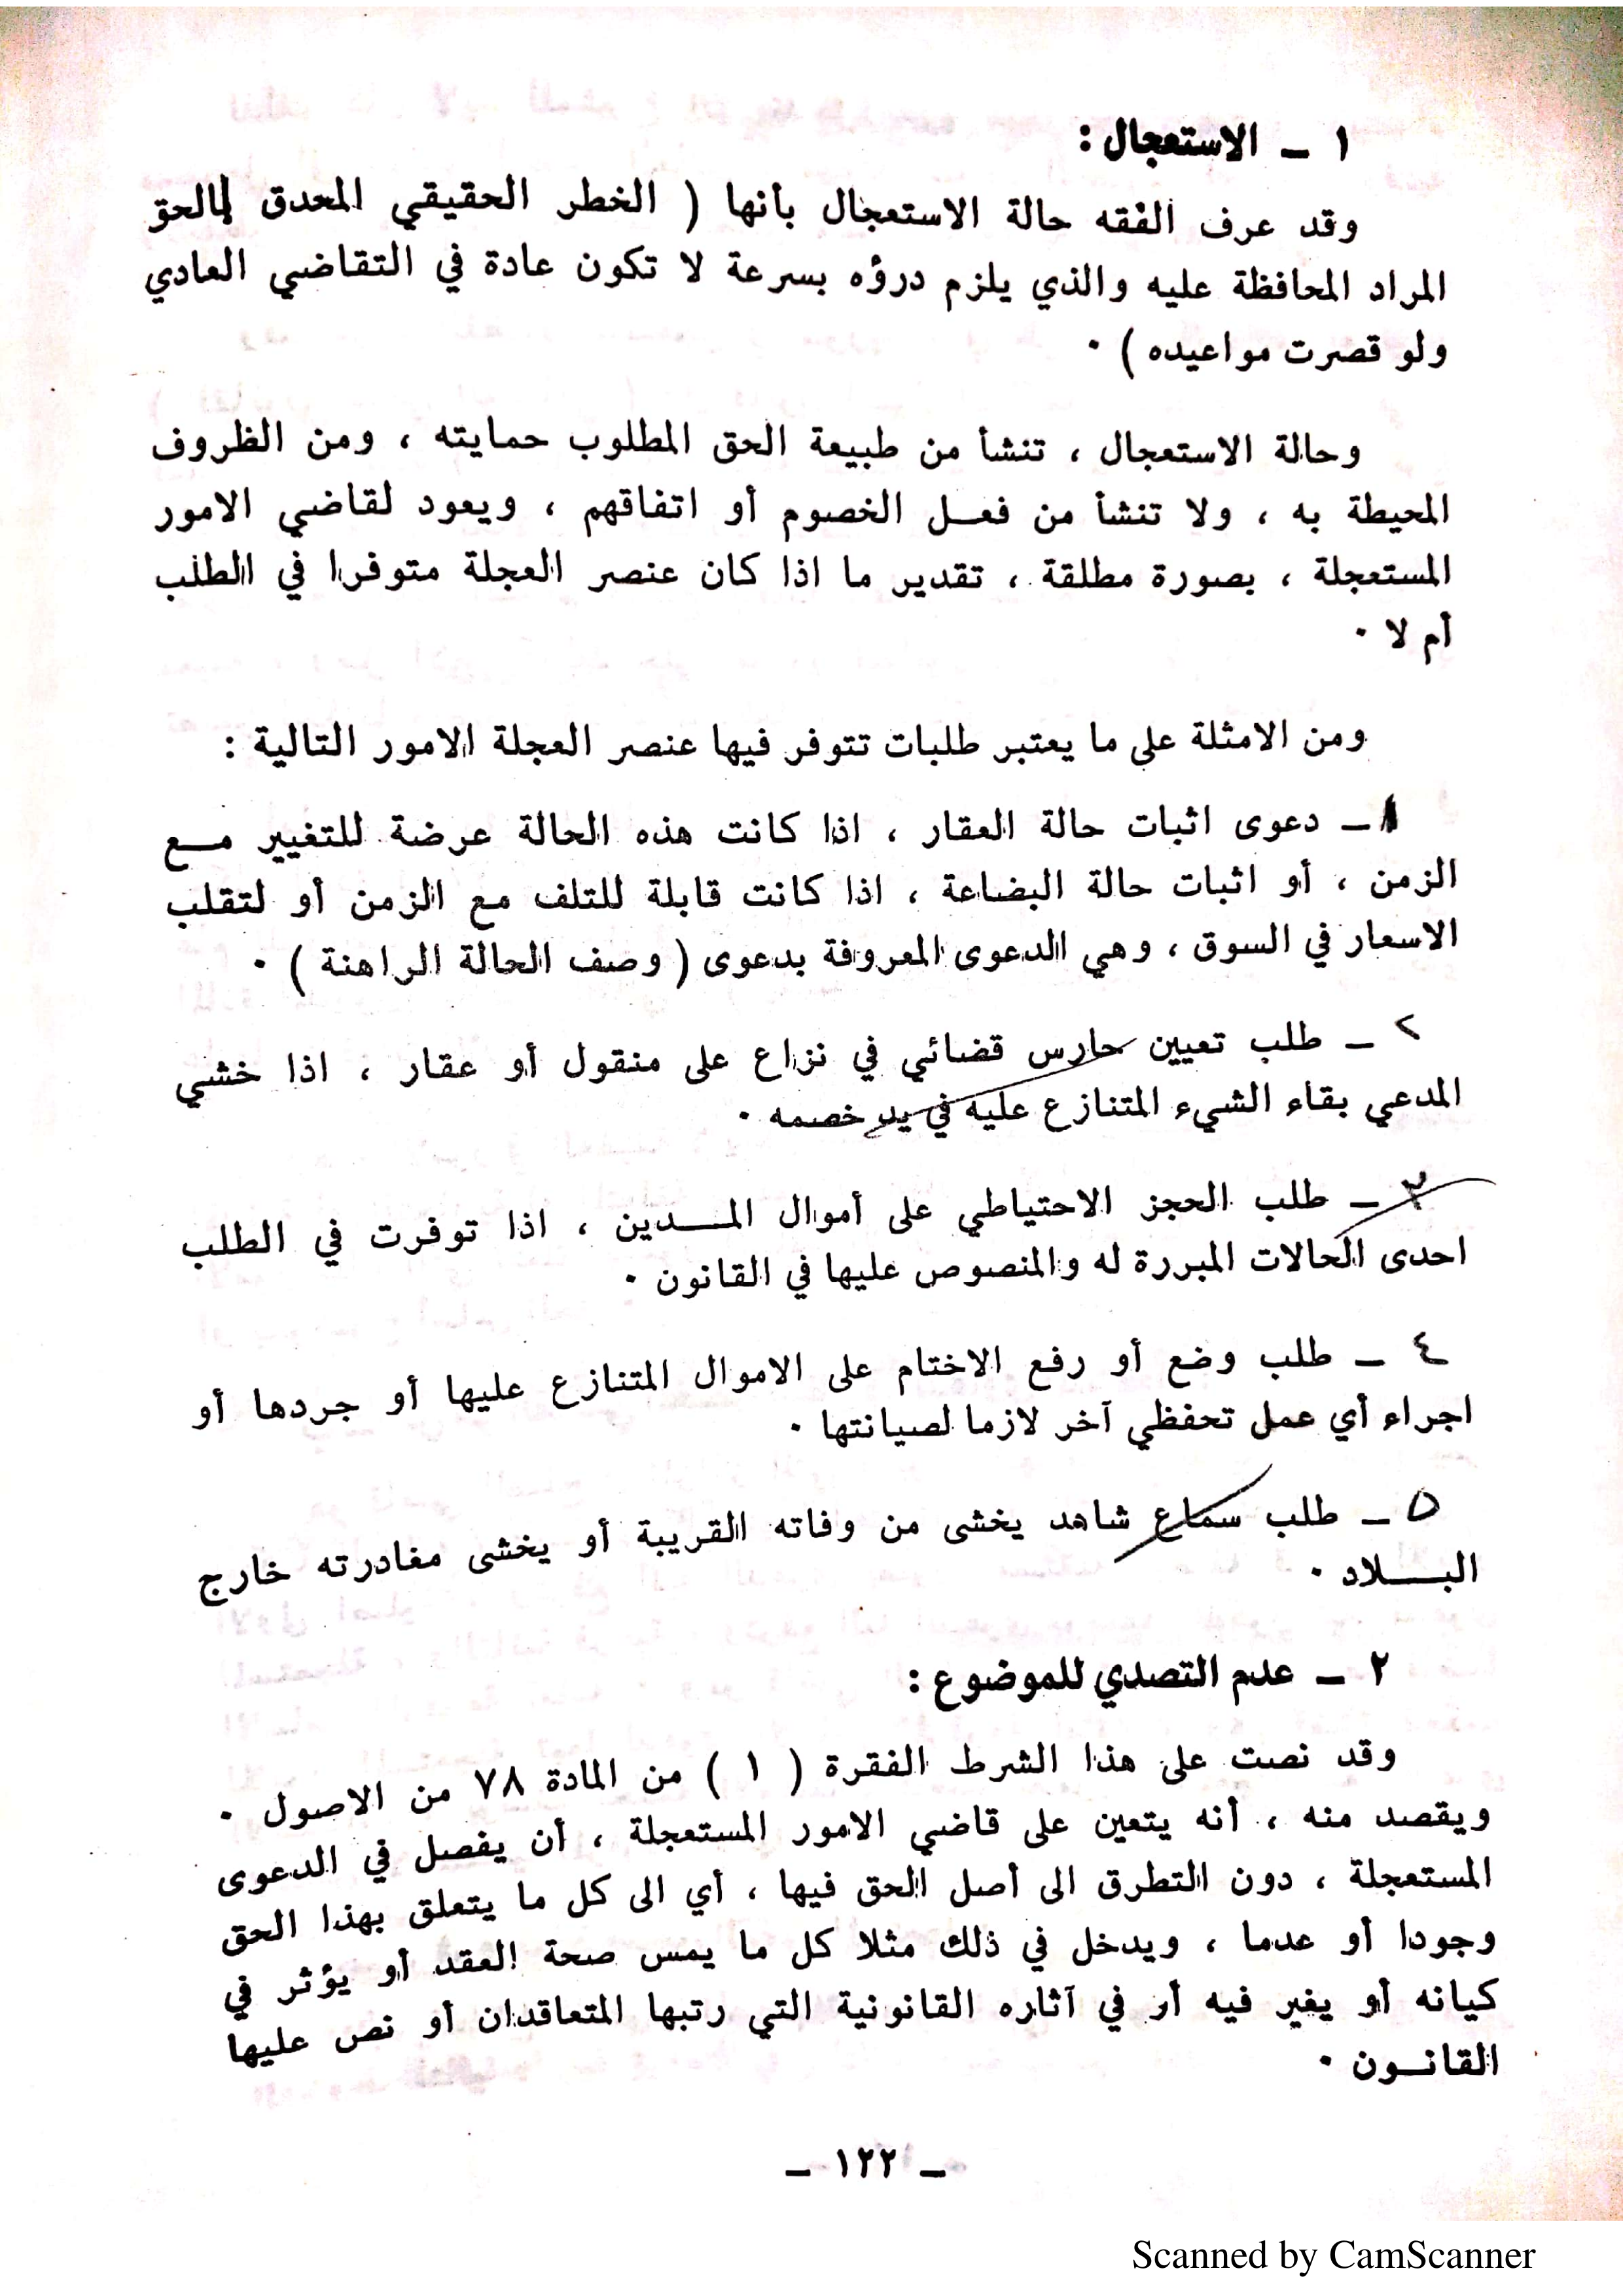 ١ – الاستعجال :
وقد عرف الفقه حالة الاستعجال بأنها ( الخطر الحقيقي المحدق بالحق
المراد المحافظة عليه والذي يلزم درؤه بسرعة لا تكون عادة في التقاضي العادي
ولو قصرت مواعيده ) ٠
وحالة الاستعجال ، تنشأ من طبيعة الحق المطلوب حمايته ، ومن الظروف
المحيطة به ، ولا تنشأ من فعل الخصوم أو اتفاقهم ، ويعود لقاضي الامور
المستعجلة ، بصورة مطلقة ، تقدير ما اذا كان عنصر العجلة متوفرا في الطلب
أم لا ٠
ومن الامثلة على ما يعتبر طلبات تتوفر فيها عنصر العجلة الامور التالية :
١ – دعوى اثبات حالة العقار ، اذا كانت هذه الحالة عرضة للتغيير مع
الزمن ، أو اثبات حالة البضاعة ، اذا كانت قابلة للتلف مع الزمن أو لتقلب
الاسعار في السوق ، وهي الدعوى المعروفة بدعوى ( وصف الحالة الراهنة ) ٠
٢ – طلب تعيين حارس قضائي في نزاع على منقول أو عقار ، اذا خشي
المدعي بقاء الشيء المتنازع عليه في يد خصمه ٠
٣ – طلب الحجز الاحتياطي على أموال المدين ، اذا توفرت في الطلب
احدى الحالات المبررة له والمنصوص عليها في القانون ٠
٤ – طلب وضع أو رفع الاختام على الاموال المتنازع عليها أو جردها أو
اجراء أي عمل تحفظي آخر لازما لصيانتها ٠
٥ – طلب سماع شاهد يخشى من وفاته القريبة أو يخشى مغادرته خارج
البلاد ٠
٢ – عدم التصدي للموضوع :
وقد نصت على هذا الشرط الفقرة ( ١ ) من المادة ٧٨ من الاصول ٠
ويقصد منه ، أنه يتعين على قاضي الامور المستعجلة ، أن يفصل في الدعوى
المستعجلة ، دون التطرق الى أصل الحق فيها ، أي الى كل ما يتعلق بهذا الحق
وجودا أو عدما ، ويدخل في ذلك مثلا كل ما يمس صحة العقد أو يؤثر في
كيانه أو يغير فيه أر في آثاره القانونية التي رتبها المتعاقدان أو نص عليها
القانون ٠
– ١٢٢ –
Scanned by CamScanner